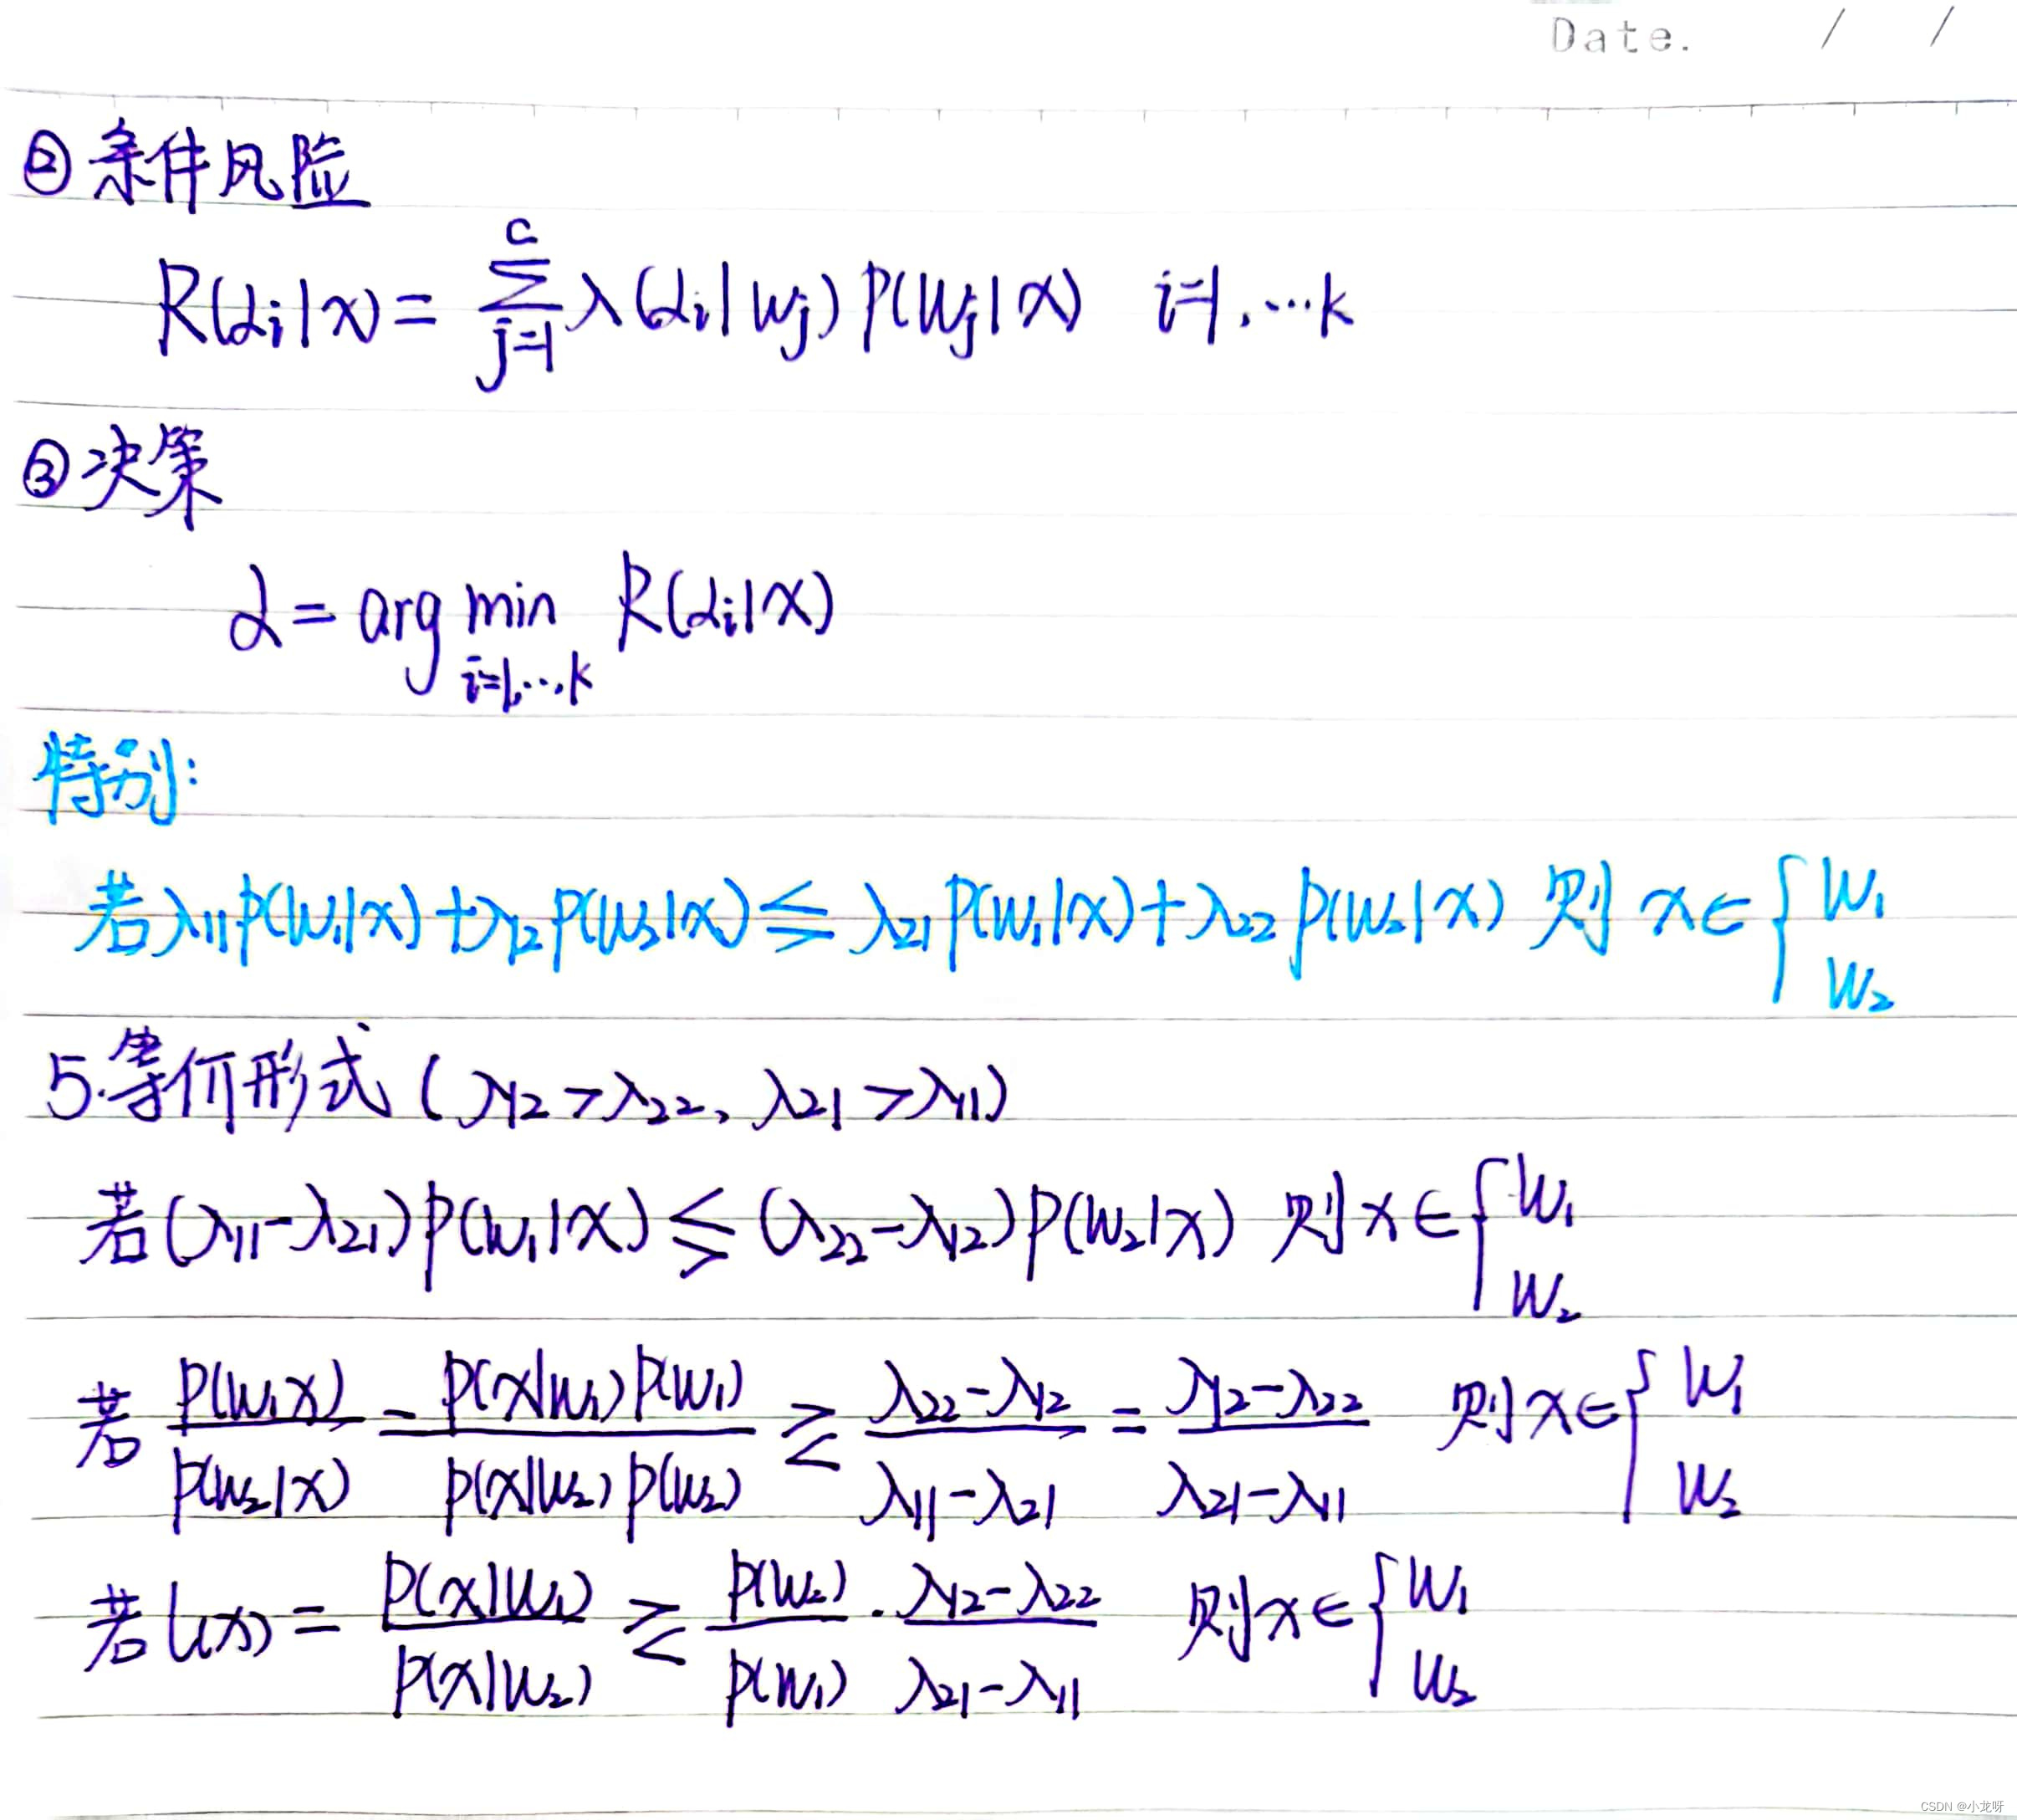 Date. / /
②条件风险
R(αi|x) = \sum_{j=1}^{c} λ(αi|wj) P(wj|x) i=1,…k
③决策
α = arg min_{i=1,…,k} R(αi|x)
特别:
若λ11P(w1|x)+λ12P(w2|x) ≶ λ21P(w1|x)+λ22P(w2|x) 则 x∈{w1 w2
5.等价形式 (λ12>λ22, λ21>λ11)
若(λ11-λ21)P(w1|x) ≶ (λ22-λ12)P(w2|x) 则x∈{w1 w2
若 \frac{P(w1x)}{P(w2|x)} = \frac{P(x|w1)P(w1)}{P(x|w2)P(w2)} ≷ \frac{λ22-λ12}{λ11-λ21} = \frac{λ12-λ22}{λ21-λ11} 则x∈{w1 w2
若l(x) = \frac{P(x|w1)}{P(x|w2)} ≷ \frac{P(w2)}{P(w1)} · \frac{λ12-λ22}{λ21-λ11} 则x∈{w1 w2
CSDN @小龙呀